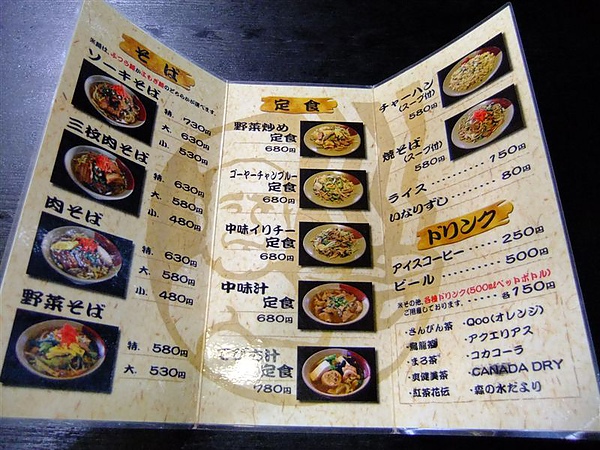 そば
※麺は、ふつう麺かよもぎ麺のどちらかが選べます。
ソーキそば
特. 730円
大. 630円
小. 530円
三枚肉そば
特. 630円
大. 580円
小. 480円
肉そば
特. 630円
大. 580円
小. 480円
野菜そば
特. 580円
大. 530円
定食
野菜炒め
定食
680円
ゴーヤーチャンプルー
定食
680円
中味イリチー
定食
680円
中味汁
定食
680円
定食
780円
チャーハン
(スープ付)
580円
焼そば
(スープ付)
580円
ライス 150円
いなりずし 80円
ドリンク
アイスコーヒー 250円
ビール 500円
※その他、各種ドリンク(500mlペットボトル)
ご用意しております。 各150円
・さんぴん茶
・烏龍茶
・まろ茶
・爽健美茶
・紅茶花伝
・Qoo(オレンジ)
・アクエリアス
・コカコーラ
・CANADA DRY
・森の水だより